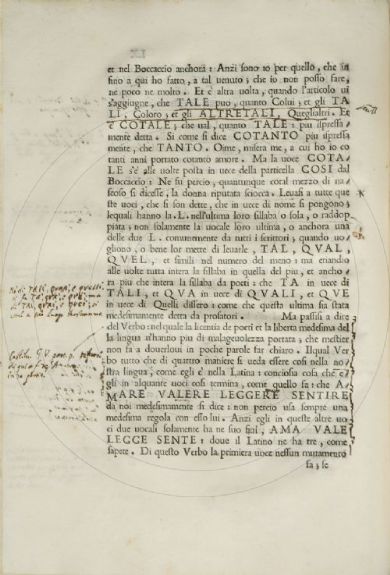 et nel Boccaccio anchora: Anzi sono io per quello, che in
sino a qui ho fatto, a tal uenuto; che io non posso fare,
ne poco ne molto. Et è altra uolta, quando l'articolo ui
s'aggiugne, che TALE puo, quanto Colui; et gli TA
LI, Coloro; et gli ALTRETALI, Quegli altri. Et
è COTALE; che ual, quanto TALE: piu ispressa
mente detta. Si come si dice COTANTO piu ispressa
mente, che TANTO. Oime, misera me, a cui ho io co
tanti anni portato cotanto amore. Ma la uoce COTA
LE s'è alle uolte posta in uece della particella COSI dal
Boccaccio: Ne su percio, quantunque cotal mezzo di na
scoso si dicesse, la donna riputata sciocca. Leuasi a tutte que
ste uoci, che si son dette, che in uece di nome si pongono;
lequali hanno la .L. nell'ultima loro sillaba o sola, o raddop
piata; non solamente la uocale loro ultima, o anchora una
delle due L. comunemente da tutti i scrittori, quando uo
gliono, o bene lor mette di leuarle, TAL, QVAL,
QVEL, et simili nel numero del meno: ma etiandio
alle uolte tutta intera la sillaba in quella del piu, et ancho
ra piu che intera la sillaba da poeti: che TA in uece di
TALI, et QVA in uece di QVALI, et QVE
in uece di Quelli dissero: come che questa ultima sia stata
medesimamente detta da prosatori. Ma passisi a dire
del Verbo: nel quale la licentia de poeti et la liberta medesima del
la lingua n'hanno piu di malageuolezza portata; che mestier
non fa a douerloui in poche parole far chiaro. Ilqual Ver
bo tutto che di quattro maniere si ueda essere cosi nella no
stra lingua, come egli è nella Latina: conciosia cosa che e
gli in alquante uoci cosi termina, come quello fa: che A
MARE VALERE LEGGERE SENTIRE
da noi medesimamente si dice: non percio usa sempre una
medesima regola con esso lui. Anzi egli in queste altre uo
ci due uocali solamente ha ne suoi fini, AMA VALE
LEGGE SENTE: doue il Latino ne ha tre, come
sapete. Di questo Verbo la primiera uoce nessun mutamento
fa; se